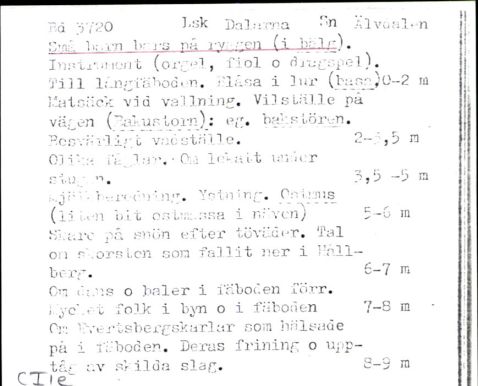 Bd 3720 Lsk Dalarna Sn Älvdalen
Små barn bars på ryggen (i bälg).
Instrument (orgel, fiol o dragspel).
Till långfäboden. Blåsa i lur (bass)0-2 m
Matsäck vid vallning. Vilställe på
vägen (Bakustorn): eg. bakstören.
Besvärligt vadställe. 2-3,5 m
Olika fåglar. Om lekatt under
stugan. 3,5 -5 m
Mjölkberedning. Ystning. Ostmus
(liten bit ostmassa i näven) 5-6 m
Skare på snön efter töväder. Tal
om skorsten som fallit ner i Häll-
berg. 6-7 m
Om dans o baler i fäboden förr.
Mycket folk i byn o i fäboden 7-8 m
Om Evertsbergskarlar som hälsade
på i fäboden. Deras frining o upp-
tåg av skilda slag. 8-9 m
CIIe